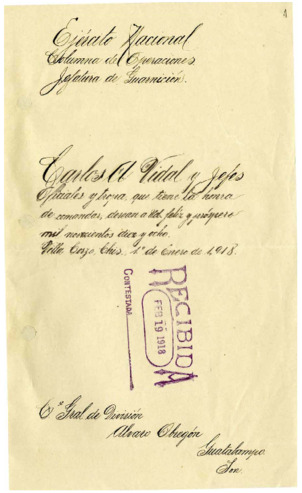 Ejército Nacional
Columna de Operaciones
Jefatura de Guarnición.
Carlos A Vidal y Jefes
Oficiales y tropa, que tiene la honra
de comandar, desean a Ud. feliz y próspero
mil novecientos diez y ocho.
Villa Corzo, Chis. 1º de Enero de 1,918.
RECIBIDA
FEB 19 1918
CONTESTADA
Cº Gral de División
Alvaro Obregón
Son.